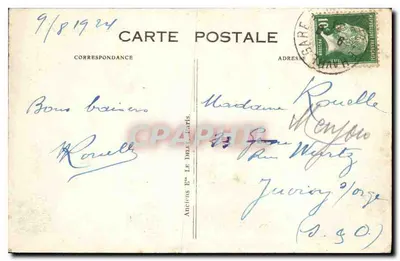 9/8 1924
CARTE POSTALE
CORRESPONDANCE
ADRESSE
GARE
15c
Bons baisers
Rouelle
Anciens Etts LE
Paris.
Madame Rouelle
13
Rue Wurtz
Juvisy s/orge
(S. & O)
CPARTS